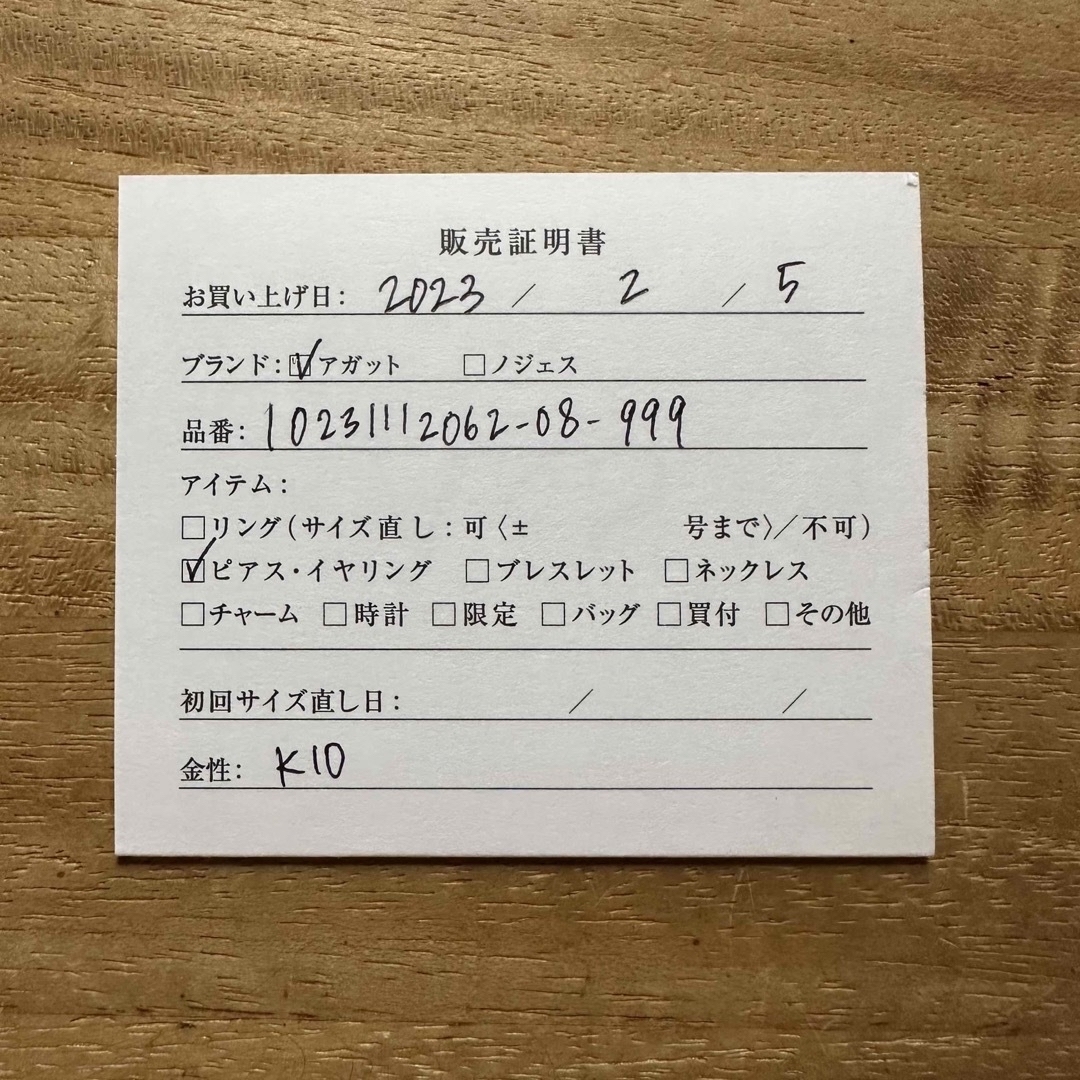 販売証明書
お買い上げ日: 2023 / 2 / 5
ブランド: ☑アガット □ノジェス
品番: 10231112062-08-999
アイテム:
□リング(サイズ直し: 可〈± 号まで〉/不可)
☑ピアス・イヤリング □ブレスレット □ネックレス
□チャーム □時計 □限定 □バッグ □買付 □その他
初回サイズ直し日: / /
金性: K10